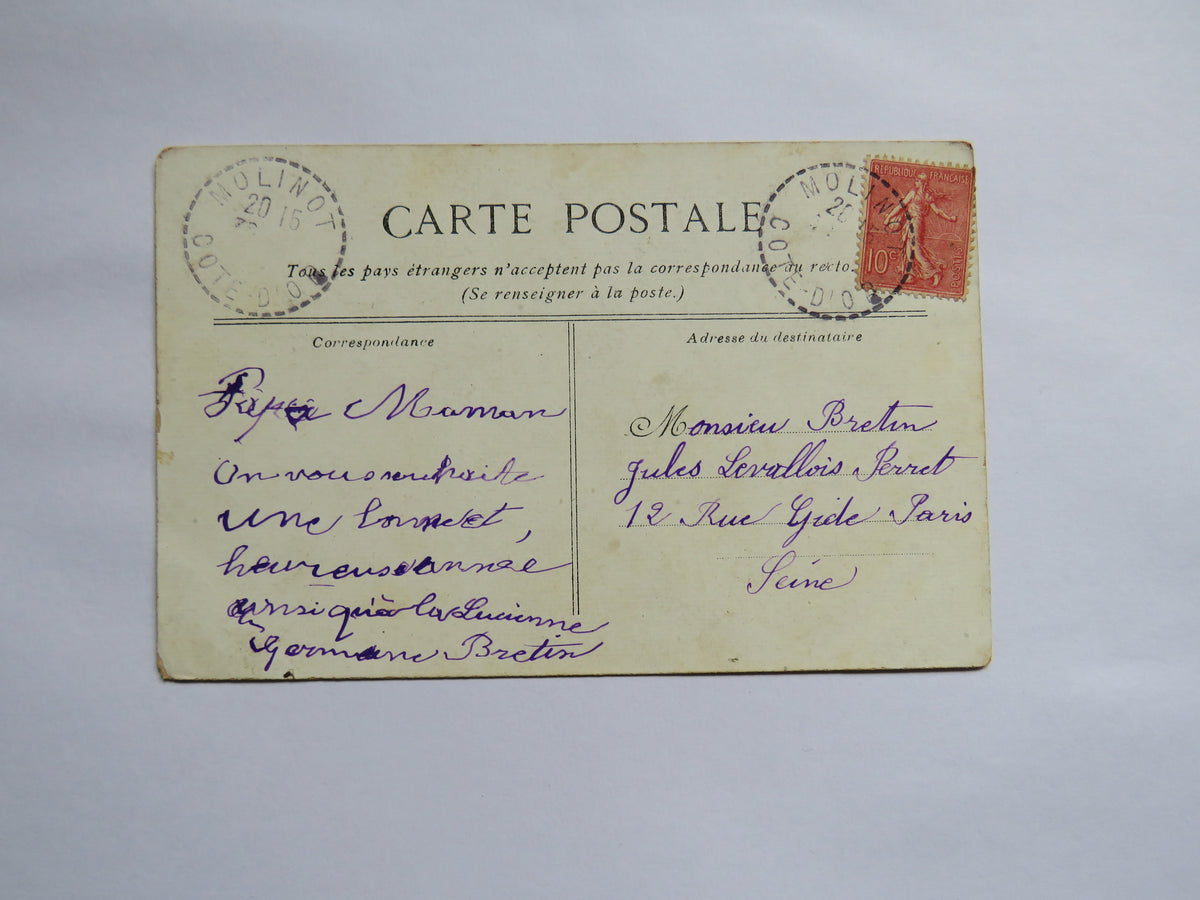 MOLINOT
20 15
COTE-D'OR
CARTE POSTALE
MOLINOT
20
COTE-D'OR
REPUBLIQUE FRANÇAISE
10c
POSTES
Tous les pays étrangers n'acceptent pas la correspondance au recto.
(Se renseigner à la poste.)
Correspondance
Papa Maman
on vous souhaite
une bonne et,
heureuse année
ainsi qu'à la Lucienne
Germaine Bretin
Adresse du destinataire
Monsieu Bretin
Jules Levallois Perret
12 Rue Gide Paris
Seine